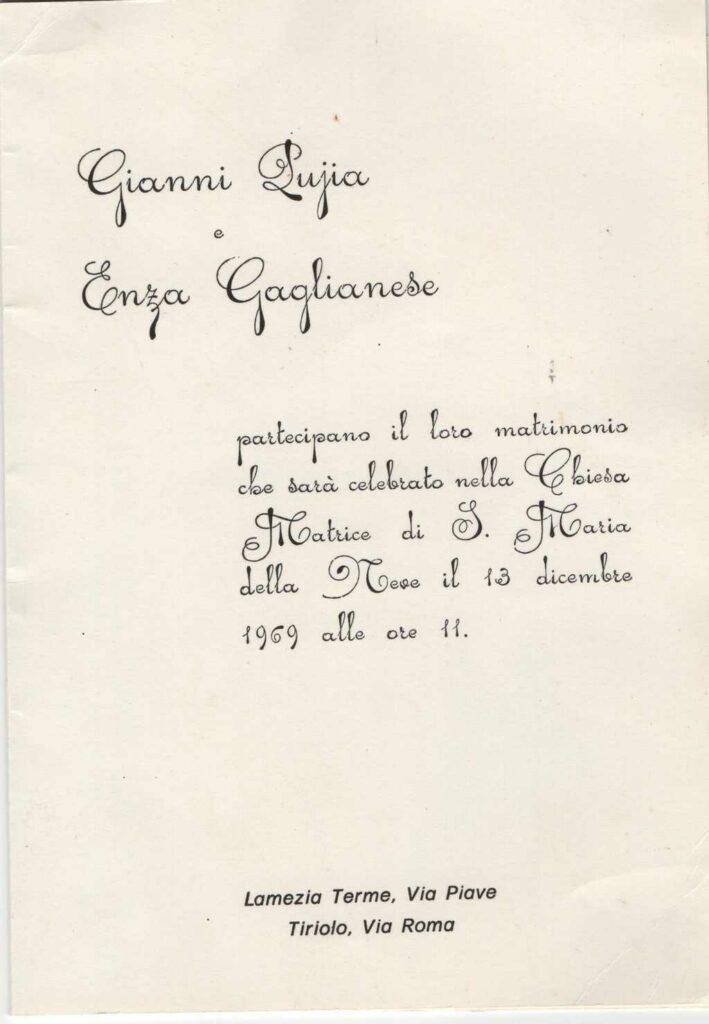 Gianni Pujia
e
Enza Gaglianese
partecipano il loro matrimonio
che sarà celebrato nella Chiesa
Matrice di S. Maria
della Neve il 13 dicembre
1969 alle ore 11.
Lamezia Terme, Via Piave
Tiriolo, Via Roma